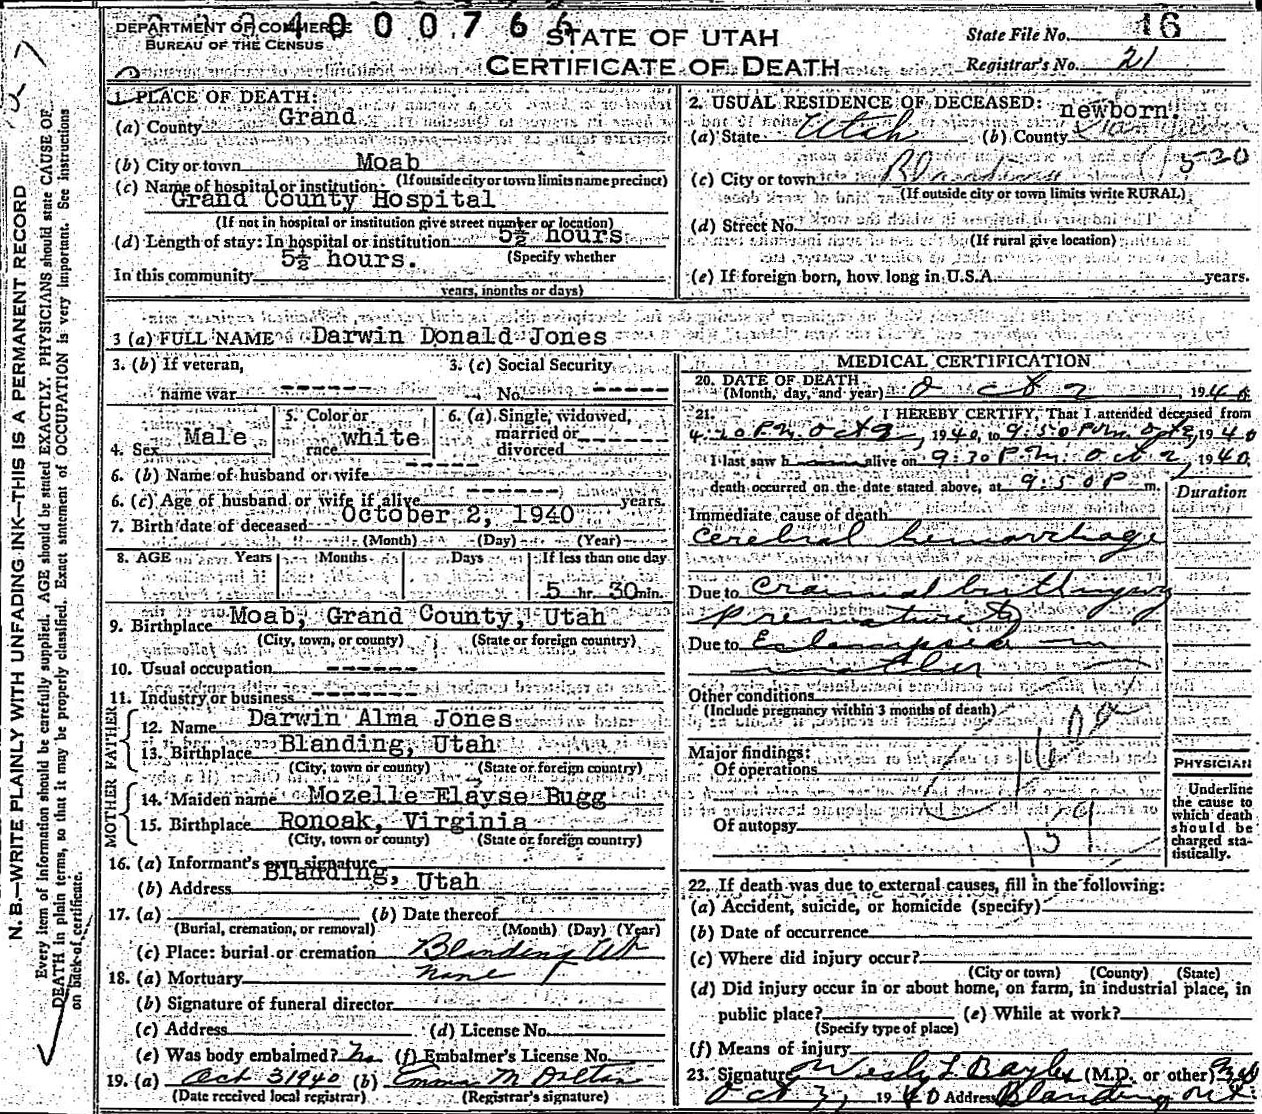 DEPARTMENT OF COMMERCE
BUREAU OF THE CENSUS
4000766
STATE OF UTAH
CERTIFICATE OF DEATH
State File No. 16
Registrar's No. 21
N. B.—WRITE PLAINLY WITH UNFADING INK—THIS IS A PERMANENT RECORD
Every item of information should be carefully supplied. AGE should be stated EXACTLY. PHYSICIANS should state CAUSE OF
DEATH in plain terms, so that it may be properly classified. Exact statement of OCCUPATION is very important. See instructions
on back of certificate.
1. PLACE OF DEATH:
(a) County Grand
(b) City or town Moab
(If outside city or town limits name precinct)
(c) Name of hospital or institution:
Grand County Hospital
(If not in hospital or institution give street number or location)
(d) Length of stay: In hospital or institution 5½ hours
(Specify whether
In this community 5½ hours.
years, months or days)
2. USUAL RESIDENCE OF DECEASED: newborn.
(a) State Utah (b) County San Juan
(c) City or town Blanding 530
(If outside city or town limits write RURAL)
(d) Street No.
(If rural give location)
(e) If foreign born, how long in U.S.A. years.
3 (a) FULL NAME Darwin Donald Jones
3. (b) If veteran,
name war
3. (c) Social Security
No.
4. Sex Male
5. Color or
race white
6. (a) Single, widowed,
married or
divorced
6. (b) Name of husband or wife
6. (c) Age of husband or wife if alive years.
7. Birth date of deceased October 2, 1940
(Month) (Day) (Year)
8. AGE Years Months Days If less than one day
5 hr. 30 min.
9. Birthplace Moab, Grand County, Utah
(City, town, or county) (State or foreign country)
10. Usual occupation
11. Industry or business
FATHER
12. Name Darwin Alma Jones
13. Birthplace Blanding, Utah
(City, town or county) (State or foreign country)
MOTHER
14. Maiden name Mozelle Elayse Bugg
15. Birthplace Ronoak, Virginia
(City, town or county) (State or foreign country)
16. (a) Informant's own signature
(b) Address Blanding, Utah
17. (a) (b) Date thereof
(Burial, cremation, or removal) (Month) (Day) (Year)
(c) Place: burial or cremation Blanding Ut
18. (a) Mortuary none
(b) Signature of funeral director
(c) Address (d) License No.
(e) Was body embalmed? No (f) Embalmer's License No.
19. (a) Oct 3 1940 (b) Emma M Dalton
(Date received local registrar) (Registrar's signature)
MEDICAL CERTIFICATION
20. DATE OF DEATH
(Month, day, and year) Oct 2, 1940
21. I HEREBY CERTIFY, That I attended deceased from
4:20 P.M. Oct 2, 1940, to 9:50 P.M. Oct 2, 1940
I last saw h alive on 9:30 P.M. Oct 2, 1940
death occurred on the date stated above, at 9:50 P m.
Duration
Immediate cause of death
Cerebral hemorrhage
Due to Cranial birth injury
Prematurity
Due to Eclampsia in
mother
Other conditions
(Include pregnancy within 3 months of death)
Major findings:
Of operations
Of autopsy
PHYSICIAN
Underline
the cause to
which death
should be
charged sta-
tistically.
22. If death was due to external causes, fill in the following:
(a) Accident, suicide, or homicide (specify)
(b) Date of occurrence
(c) Where did injury occur?
(City or town) (County) (State)
(d) Did injury occur in or about home, on farm, in industrial place, in
public place? (e) While at work?
(Specify type of place)
(f) Means of injury
23. Signature Wesly L Bayles (M.D. or other)
Oct 3, 1940 Address Blanding Ut.